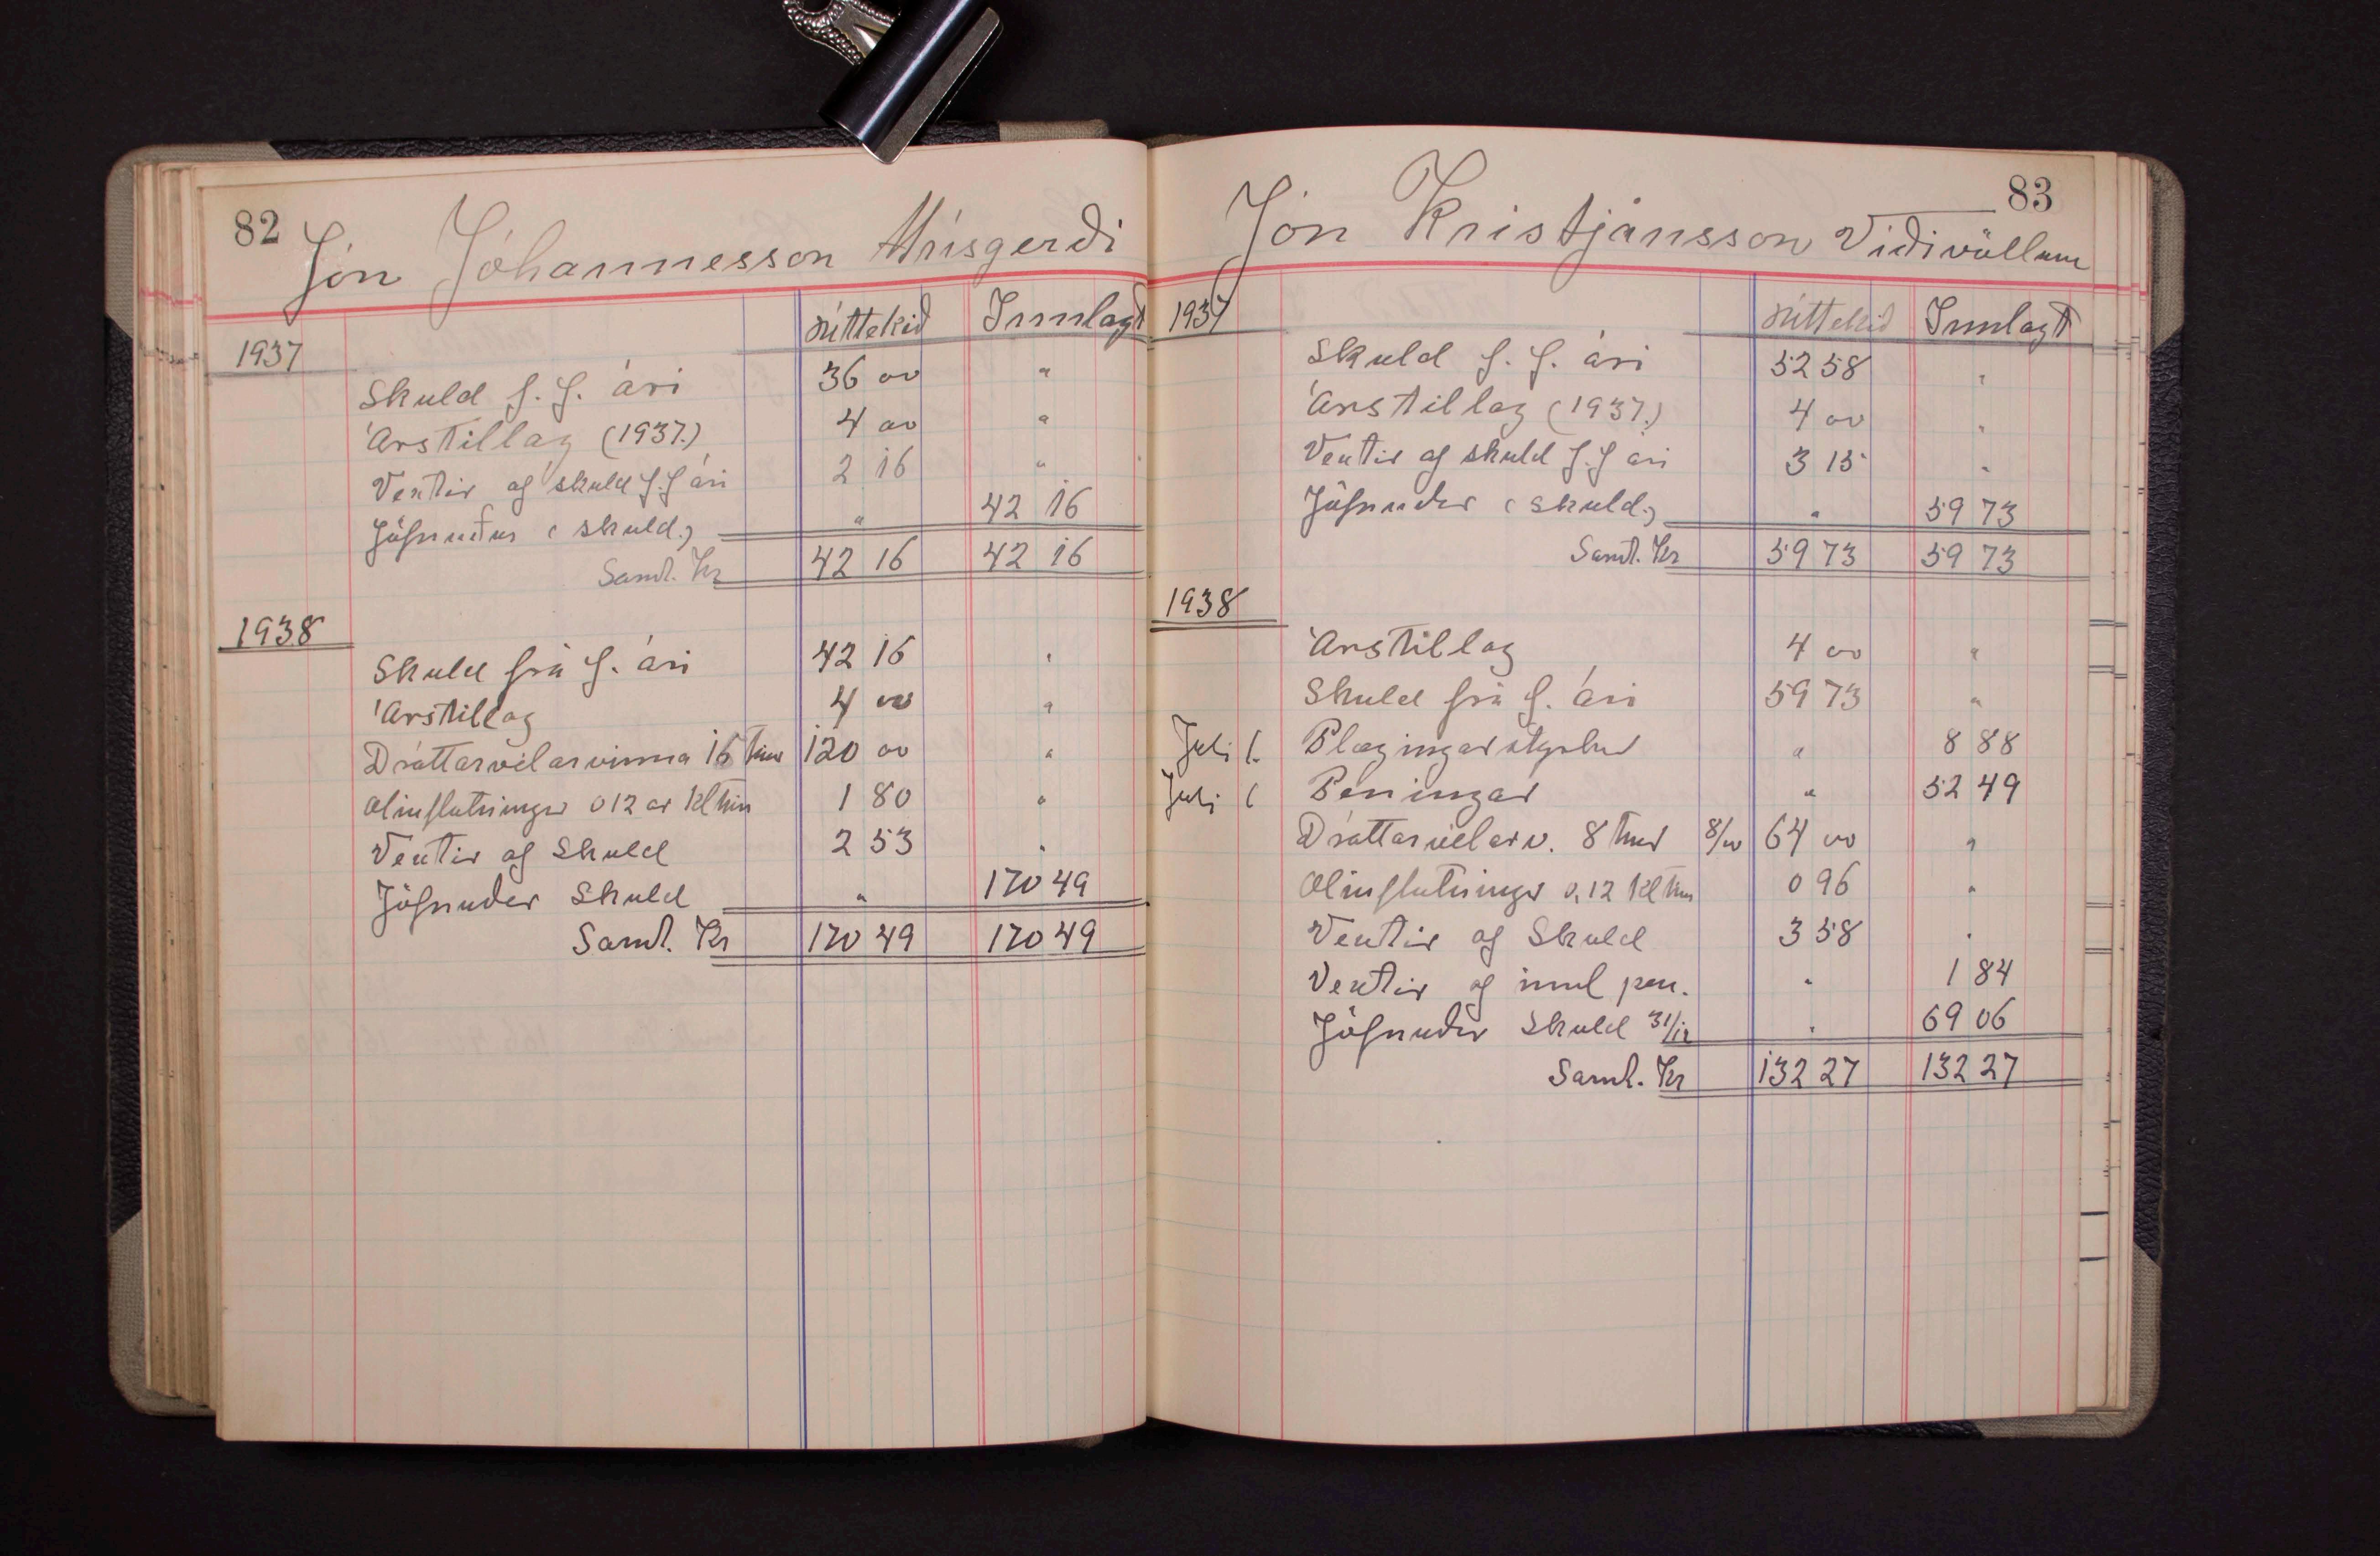 82
Jón Jóhannesson Hrísgerði
Úttekið Innlagt
1937
Skuld f. f. ári 36 00 "
Árstillag (1937.) 4 00 "
Vextir af skuld f. f ári 2 16 "
Jöfnuður (skuld.) " 42 16
Saml. Kr 42 16 42 16
1938
Skuld frá f. ári 42 16 "
Árstillag 4 00 "
Dráttarvélarvinna 15 tímar 120 00 "
Olíuflutningur 0 12 ar kl tím 1 80 "
Vextir af Skuld 2 53 "
Jöfnuður Skuld " 170 49
Saml. Kr 170 49 170 49
83
Jón Kristjánsson Víðivöllum
1937 Úttekið Innlagt
Skuld f. f. ári 52 58 "
Árstillag (1937.) 4 00 "
Vextir af skuld f. f ári 3 15 "
Jöfnuður (skuld.) " 59 73
Saml. Kr 59 73 59 73
1938
Árstillag 4 00 "
Skuld frá f. ári 59 73 "
Júlí 1. Plægingarstyrkur " 8 88
Júlí 1 Peningar " 52 49
Dráttarvélarv. 8 tímar 8/00 64 00 "
Olíuflutningur 0,12 kl tím 0 96 "
Vextir af Skuld 3 58 "
Vextir af innl pen. " 1 84
Jöfnuður Skuld 31/12 " 69 06
Saml. Kr 132 27 132 27